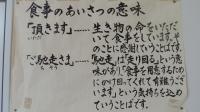 食事のあいさつの意味
「頂きます」……生き物の命をいただ
いただ
いて食事をしています。そ
のことに感謝ということです。
「ご馳走さま」……「馳走」は「走り回る」という意
ち そう
味があり「食事を用意するため
にかけ回ってくれて有難うござ
います」という気持ちを込め
ていうことばです。